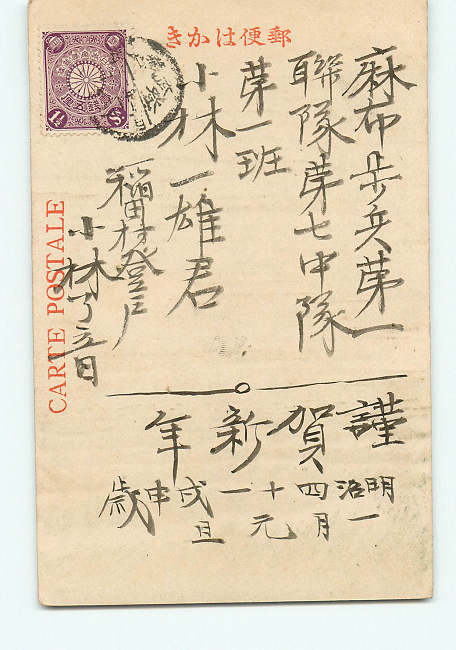 郵便はかき
麻布歩兵第一
聯隊第七中隊
第一班
小林一雄君
稲田村登戸
小林了音
謹賀新年
明治四十一戊申歳
一月元旦
CARTE POSTALE